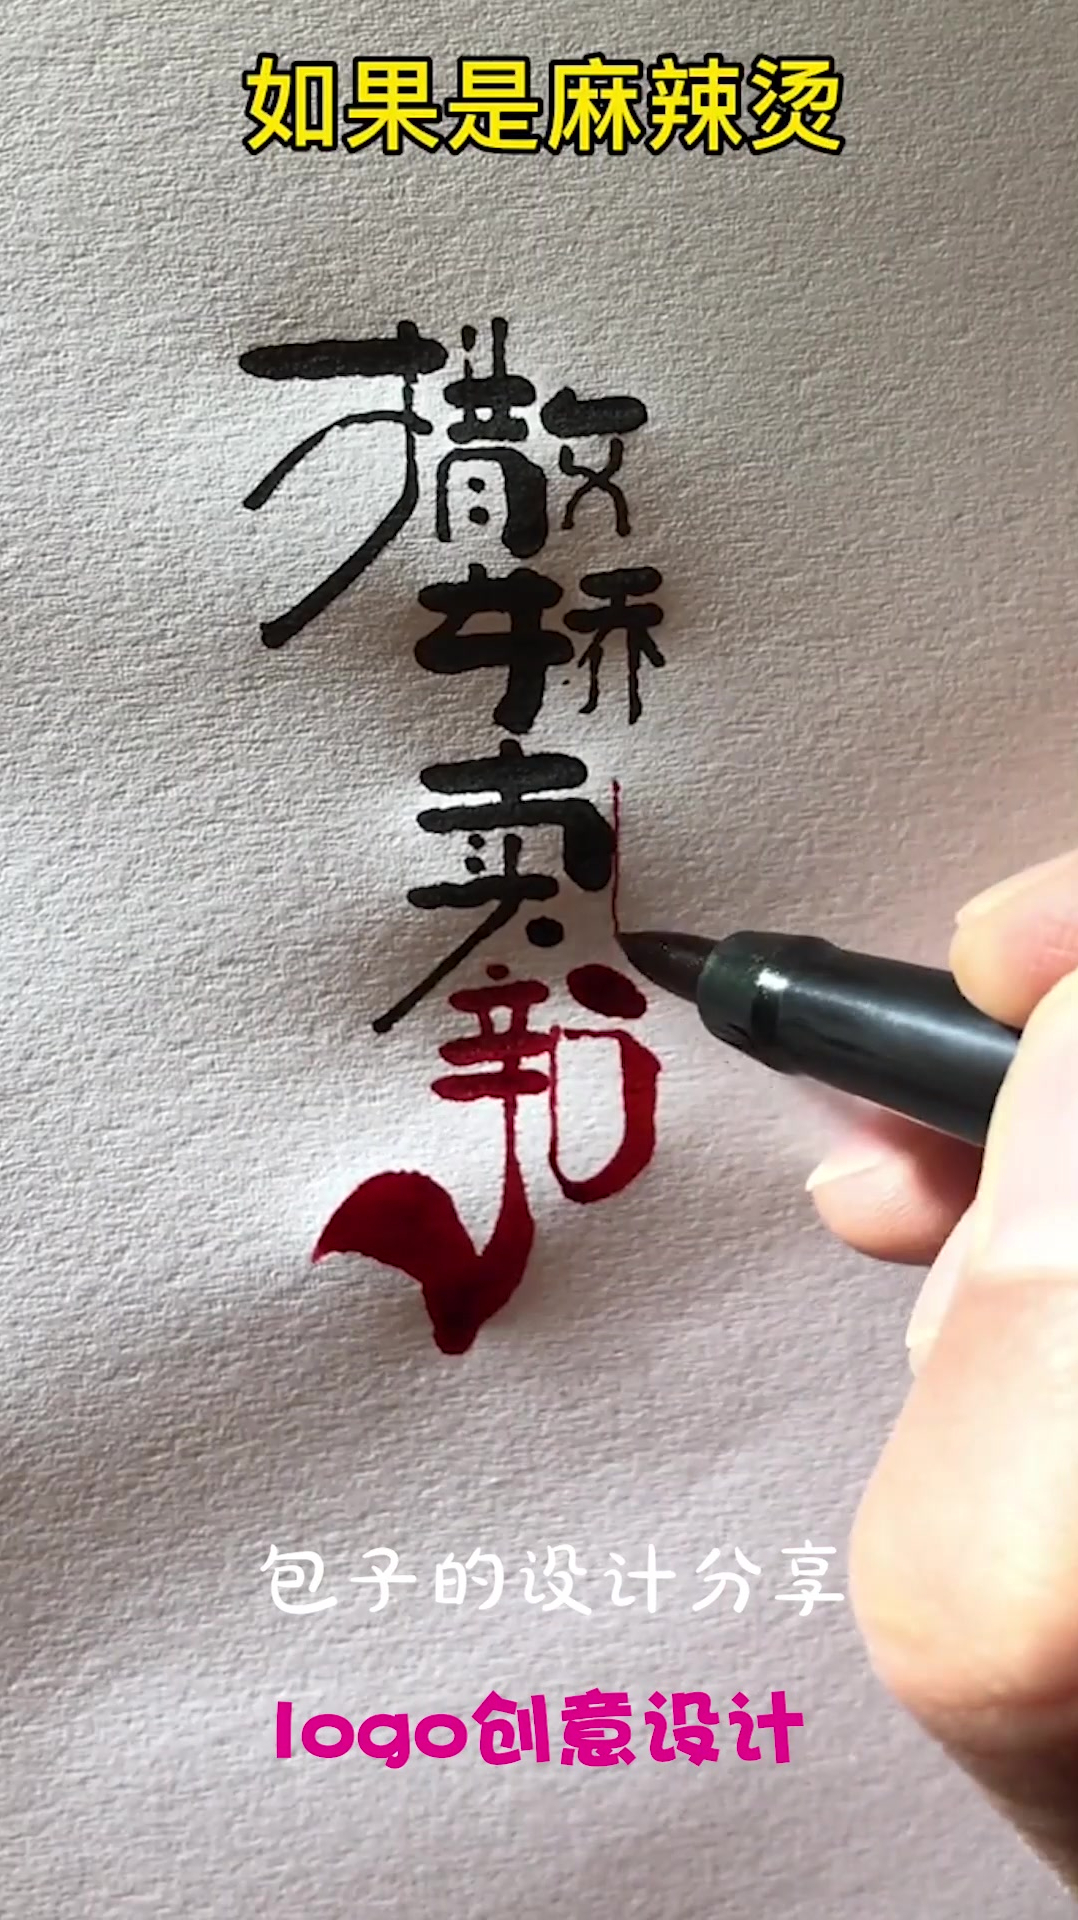 如果是麻辣烫
撒
娇
卖
包子的设计分享
logo创意设计